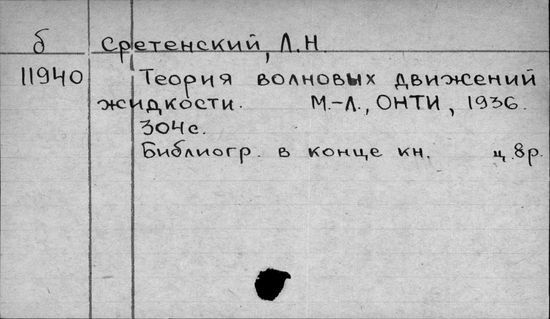 б Сретенский, Л.Н.
11940 Теория волновых движений
жидкости. М.-Л., ОНТИ, 1936.
304с.
Библиогр. в конце кн. ц. 8р.